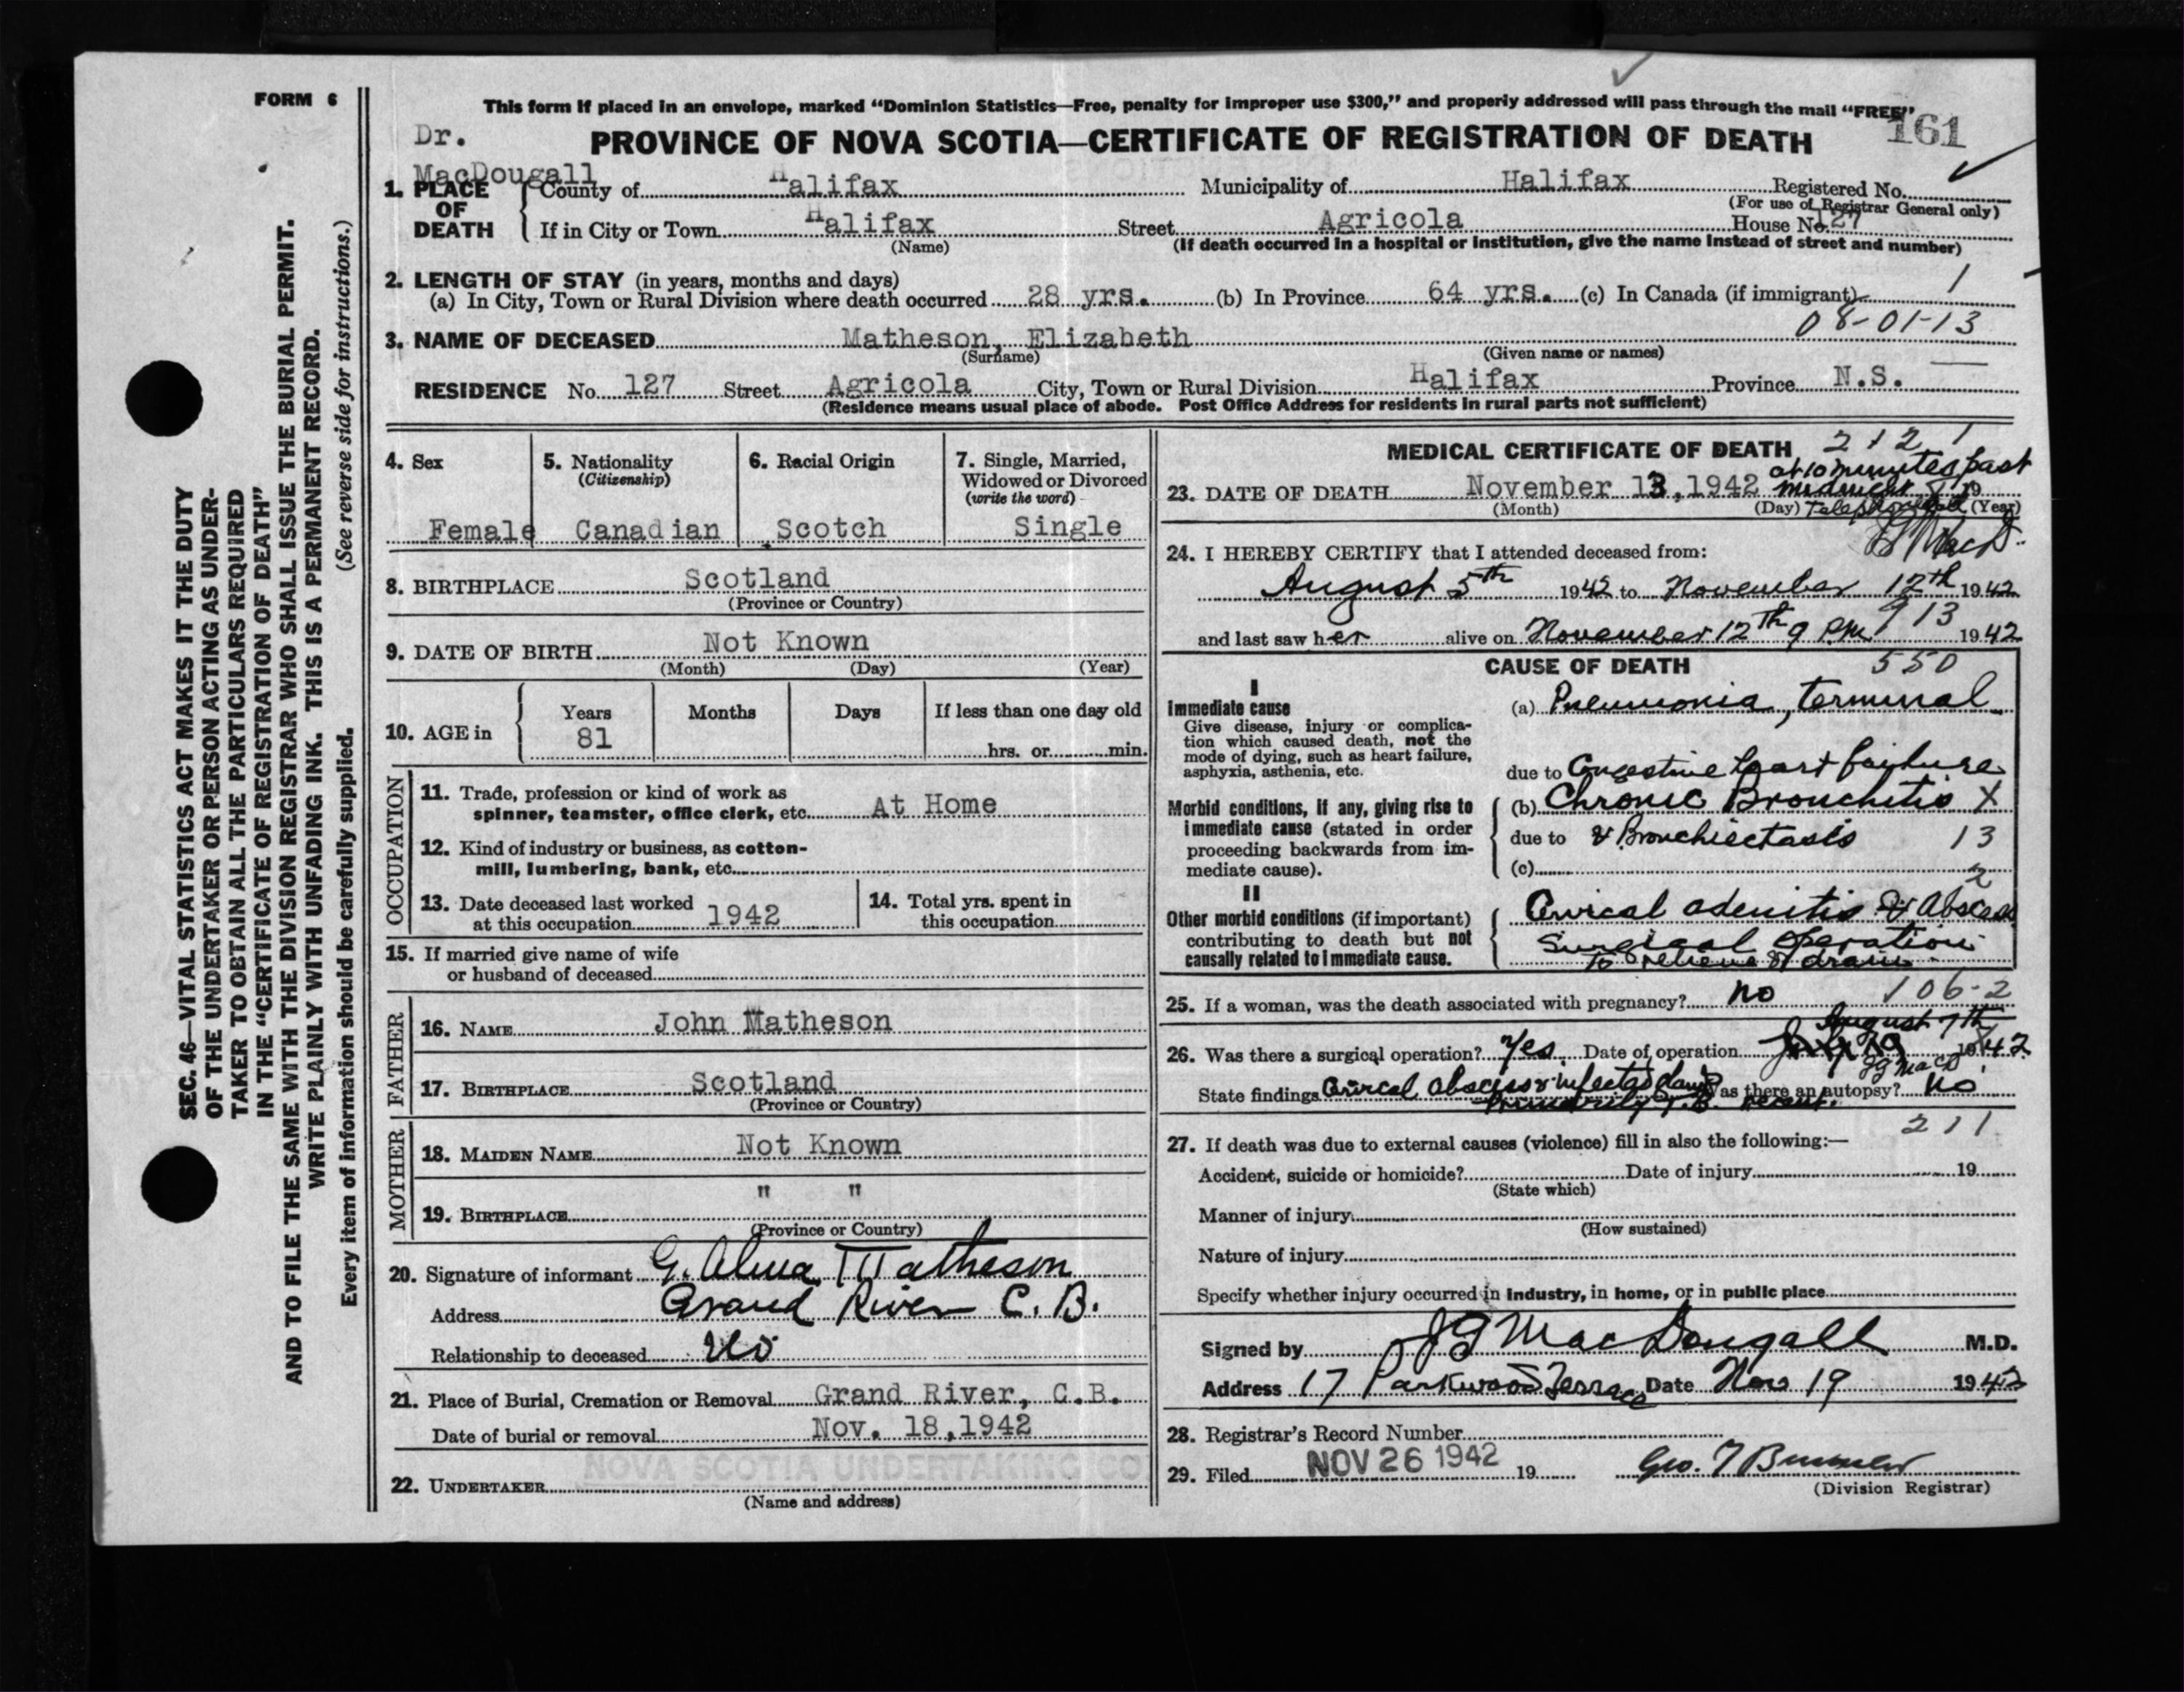 FORM 6
This form if placed in an envelope, marked “Dominion Statistics—Free, penalty for improper use $300,” and properly addressed will pass through the mail “FREE”
Dr. MacDougall
PROVINCE OF NOVA SCOTIA—CERTIFICATE OF REGISTRATION OF DEATH
161
1. PLACE OF DEATH
County of Halifax Municipality of Halifax Registered No.
(For use of Registrar General only)
If in City or Town Halifax Street Agricola House No. 127
(Name) (If death occurred in a hospital or institution, give the name instead of street and number)
2. LENGTH OF STAY (in years, months and days)
(a) In City, Town or Rural Division where death occurred 28 yrs. (b) In Province 64 yrs. (c) In Canada (if immigrant) 1
08-01-13
3. NAME OF DECEASED Matheson, Elizabeth
(Surname) (Given name or names)
RESIDENCE No. 127 Street Agricola City, Town or Rural Division Halifax Province N.S.
(Residence means usual place of abode. Post Office Address for residents in rural parts not sufficient)
4. Sex
Female
5. Nationality
(Citizenship)
Canadian
6. Racial Origin
Scotch
7. Single, Married,
Widowed or Divorced
(write the word)
Single
8. BIRTHPLACE Scotland
(Province or Country)
9. DATE OF BIRTH Not Known
(Month) (Day) (Year)
10. AGE in
Years Months Days If less than one day old
81 hrs. or min.
OCCUPATION
11. Trade, profession or kind of work as
spinner, teamster, office clerk, etc. At Home
12. Kind of industry or business, as cotton-
mill, lumbering, bank, etc.
13. Date deceased last worked
at this occupation 1942
14. Total yrs. spent in
this occupation
15. If married give name of wife
or husband of deceased
FATHER
16. NAME John Matheson
17. BIRTHPLACE Scotland
(Province or Country)
MOTHER
18. MAIDEN NAME Not Known
19. BIRTHPLACE " "
(Province or Country)
20. Signature of informant G. Alma Matheson
Address Grand River C. B.
Relationship to deceased
21. Place of Burial, Cremation or Removal Grand River, C.B.
Date of burial or removal Nov. 18, 1942
NOVA SCOTIA UNDERTAKING CO.
22. UNDERTAKER
(Name and address)
MEDICAL CERTIFICATE OF DEATH 2 1 2 1
at 10 minutes past
23. DATE OF DEATH November 13, 1942 midnight 19
(Month) (Day) (Year)
24. I HEREBY CERTIFY that I attended deceased from:
August 5th 1942 to November 12th 1942
and last saw her alive on November 12th 9 PM 1942
913
CAUSE OF DEATH 550
I
Immediate cause
Give disease, injury or complica-
tion which caused death, not the
mode of dying, such as heart failure,
asphyxia, asthenia, etc.
(a) Pneumonia, terminal
due to Congestive heart failure
Morbid conditions, if any, giving rise to
immediate cause (stated in order
proceeding backwards from im-
mediate cause).
(b) Chronic Bronchitis X
due to & Bronchiectasis 13
(c) 2
II
Other morbid conditions (if important)
contributing to death but not
causally related to immediate cause.
Cervical adenitis & Abscess
Surgical operation
to relieve & drain.
25. If a woman, was the death associated with pregnancy? no 106-2
August 7th
26. Was there a surgical operation? Yes Date of operation 1942
State findings Cervical abscess & infected gland Was there an autopsy? no
Primarily T.B.
211
27. If death was due to external causes (violence) fill in also the following:—
Accident, suicide or homicide? Date of injury 19
(State which)
Manner of injury
(How sustained)
Nature of injury
Specify whether injury occurred in industry, in home, or in public place
Signed by J G MacDougall M.D.
Address 17 Parkwood Terrace Date Nov 19 1942
28. Registrar's Record Number
29. Filed NOV 26 1942 19
(Division Registrar)
SEC. 46—VITAL STATISTICS ACT MAKES IT THE DUTY
OF THE UNDERTAKER OR PERSON ACTING AS UNDER-
TAKER TO OBTAIN ALL THE PARTICULARS REQUIRED
IN THE “CERTIFICATE OF REGISTRATION OF DEATH”
AND TO FILE THE SAME WITH THE DIVISION REGISTRAR WHO SHALL ISSUE THE BURIAL PERMIT.
WRITE PLAINLY WITH UNFADING INK. THIS IS A PERMANENT RECORD.
Every item of information should be carefully supplied. (See reverse side for instructions.)